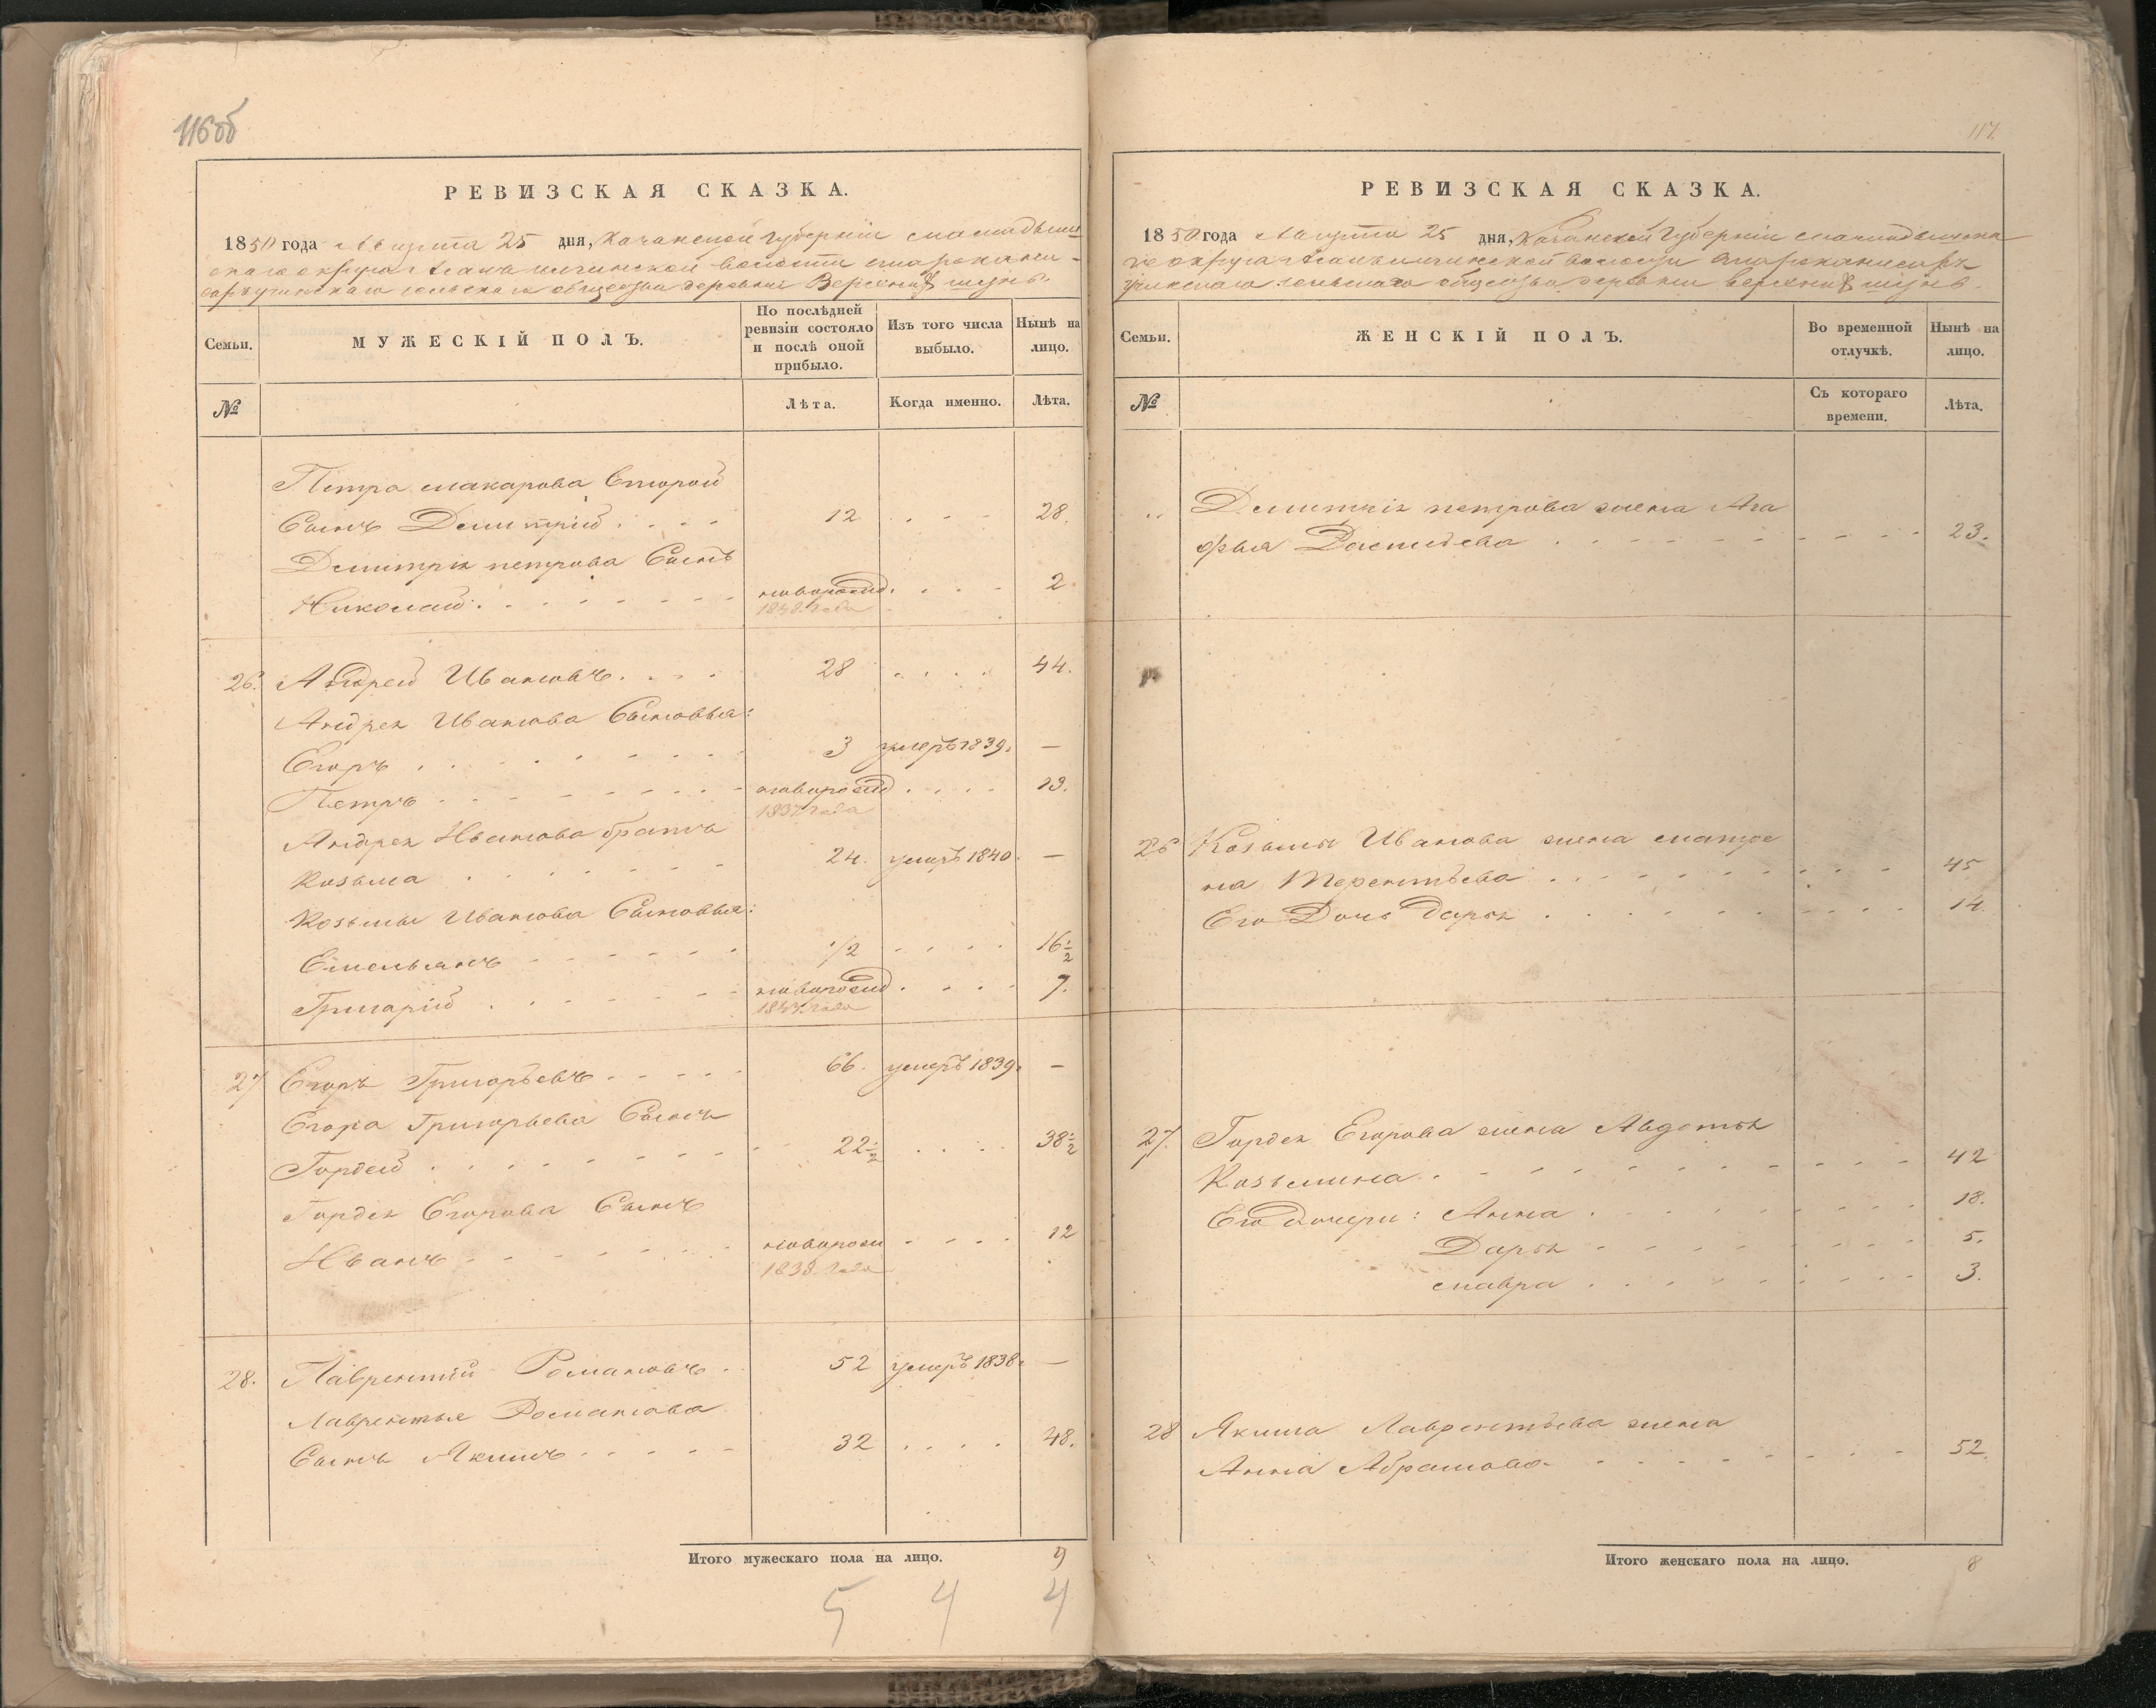 116об
РЕВИЗСКАЯ СКАЗКА.
1850 года Августа 25 дня, Казанской Губерніи Мамадыш-
скаго округа волости
сельскаго общества деревни Верхній шунь.
Семьи.
МУЖЕСКІЙ ПОЛЪ.
По послѣдней ревизіи состояло и послѣ оной прибыло.
Изъ того числа выбыло.
Нынѣ на лицо.
№
Лѣта.
Когда именно.
Лѣта.
Петра Макарова Второй
Сынъ Дмитрій 12 28.
Дмитрія петрова Сынъ
Николай новорожд. 2
1848 года
26. Андрей Ивановъ 28 44.
Андрея Иванова Сыновья:
Егоръ 3 умеръ 1839. —
Петръ новорожд 13.
1837 года
Андрея Иванова братъ
Козьма 24. умеръ 1840. —
Козьмы Иванова Сыновья:
Емельянъ 1/2 16 1/2
Григорій новорожд 7.
1843 года
27 Егоръ Григорьевъ 66. умеръ 1839. —
Егора Григорьева Сынъ
Гордей 22 1/2 38 1/2
Гордея Егорова Сынъ
Иванъ новорож 12
1838 года
28. Лаврентій Романовъ 52 умеръ 1838. —
Лаврентья Романова
Сынъ Якимъ 32 48.
Итого мужескаго пола на лицо. 9
5 4 4
117.
РЕВИЗСКАЯ СКАЗКА.
1850 года Августа 25 дня, Казанской Губерніи Мамадышска
го округа волости
сельскаго общества деревни верхній шунь.
Семьи.
ЖЕНСКІЙ ПОЛЪ.
Во временной отлучкѣ.
Нынѣ на лицо.
№
Съ котораго времени.
Лѣта.
Дмитрія петрова жена Ага
фья 23.
26 Козьмы Иванова жена матре
на Терентьева 45
Его Дочь Дарья 14
27. Гордея Егорова жена Авдотья
Козьмина 42
Его дочери: Анна 18.
Дарья 5.
мавра 3.
28 Якима Лаврентьева жена
Анна Абрамова 52
Итого женскаго пола на лицо. 8